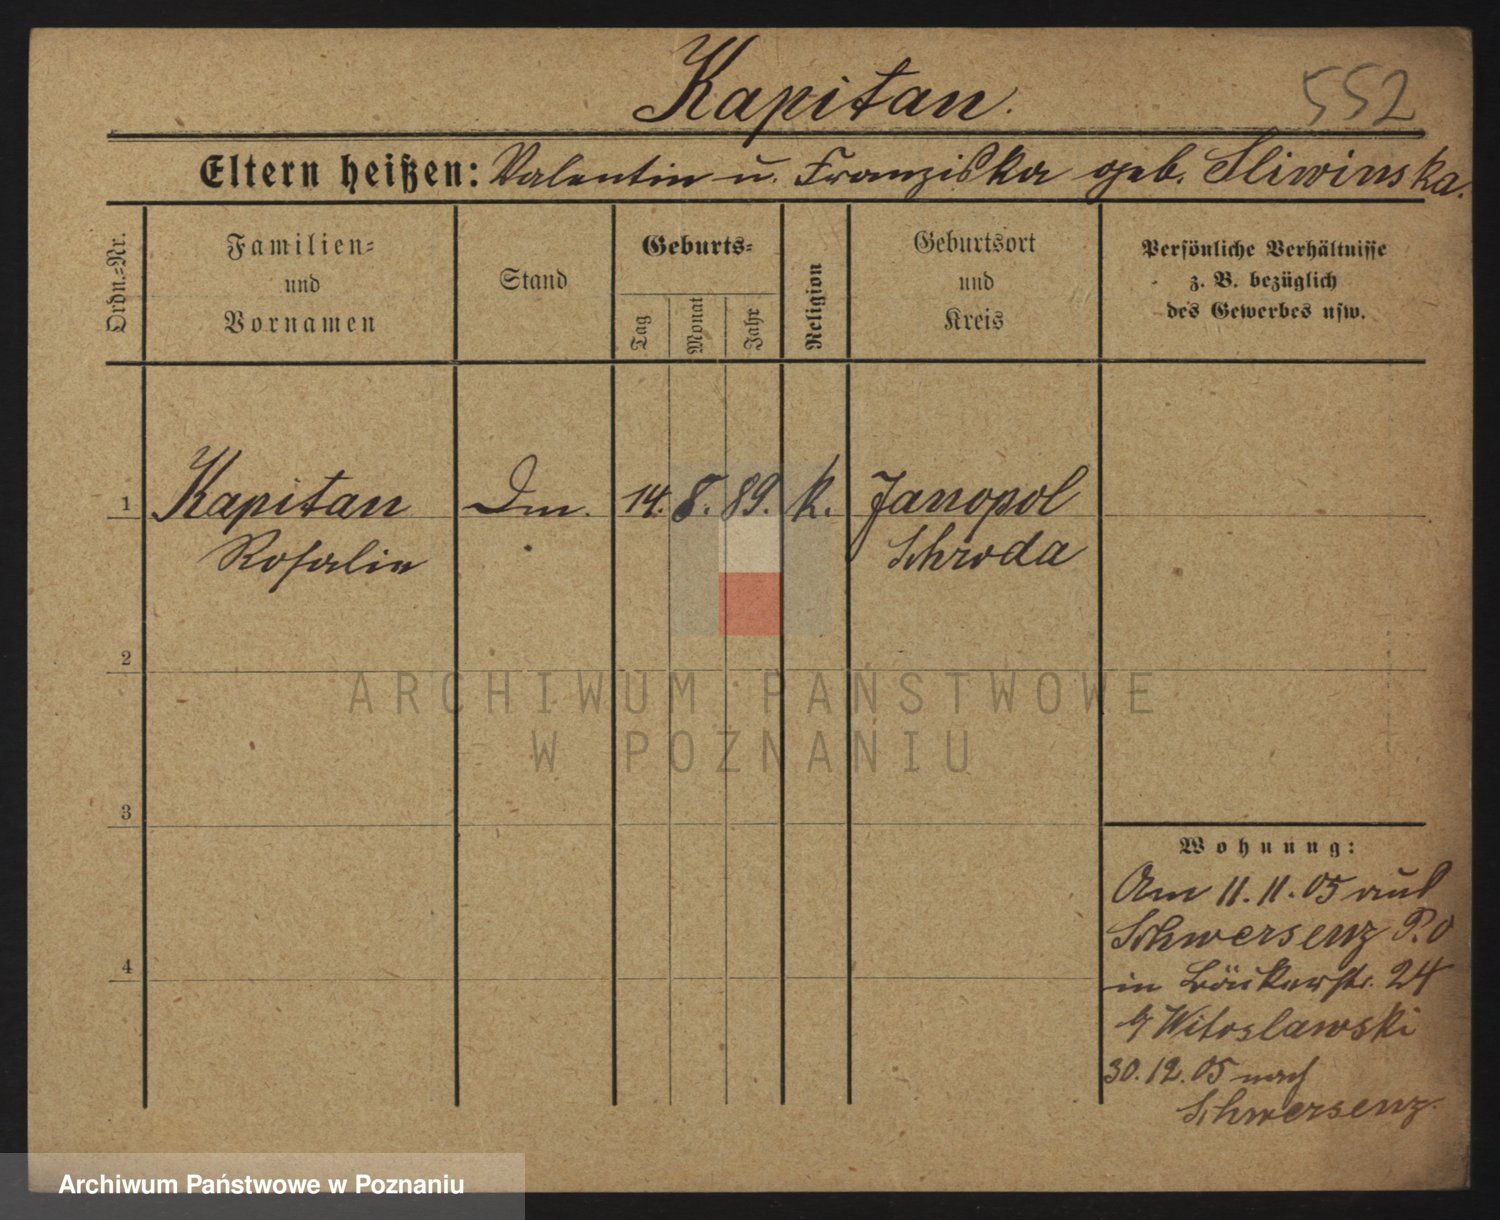 Kapitan.
552
Eltern heißen: Valentin u. Franziska geb. Sliwinska.
Ordn.=Nr.
Familien=
und
Vornamen
Stand
Geburts=
Tag
Monat
Jahr
Religion
Geburtsort
und
Kreis
Persönliche Verhältnisse
z. B. bezüglich
des Gewerbes usw.
1 Kapitan Dm. 14. 8. 89. k. Janopol
Rosalie Schroda
2
ARCHIWUM PAŃSTWOWE
W POZNANIU
3
Wohnung:
Am 11.11.05 aus
Schwersenz P.O
in Bäckerstr. 24
Witoslawski
4
30.12.05 nach
Schwersenz.
Archiwum Państwowe w Poznaniu